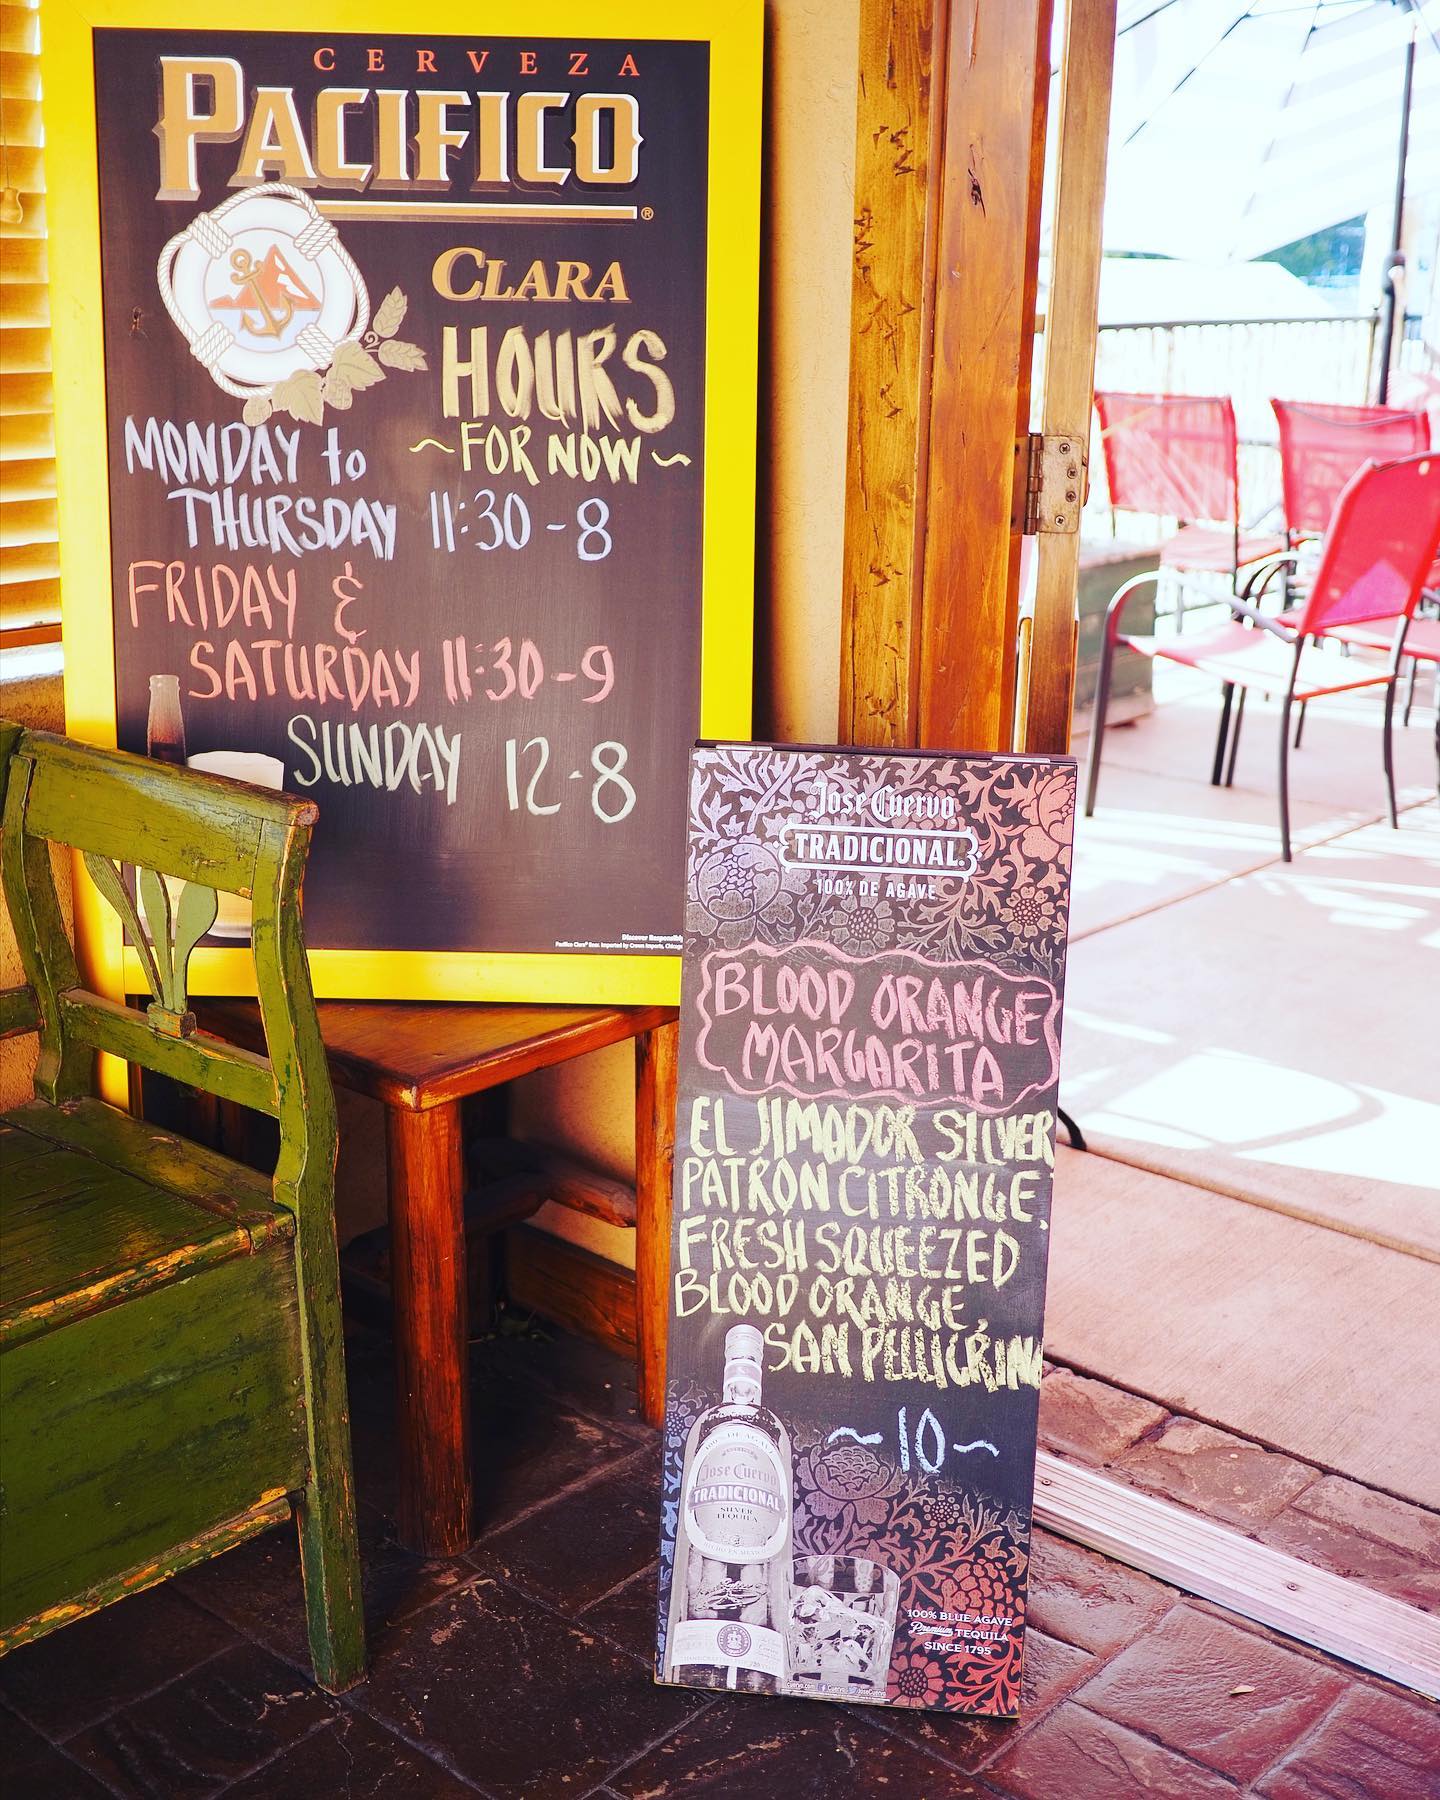 CERVEZA
PACIFICO
®
CLARA
HOURS
~FOR NOW~
MONDAY to
THURSDAY 11:30-8
FRIDAY &
SATURDAY 11:30-9
SUNDAY 12-8
Discover Responsibly
Pacifico Clara® Beer. Imported by Crown Imports, Chicago
Jose Cuervo
TRADICIONAL
100% DE AGAVE
BLOOD ORANGE
MARGARITA
EL JIMADOR SILVER
PATRON CITRONGE,
FRESH SQUEEZED
BLOOD ORANGE,
SAN PELLIGRINO
~10~
100% DE AGAVE
Jose Cuervo
TRADICIONAL
SILVER
TEQUILA
100% BLUE AGAVE
Premium TEQUILA
SINCE 1795
cuervo.com Cuervo JoseCuervo